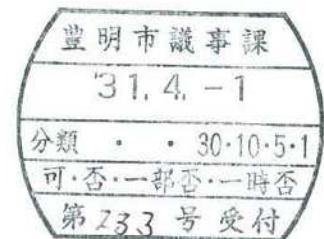 豊明市議事課
'31.4.-1
分類 ・ ・ 30・10・5・1
可・否・一部否・一時否
第233号受付